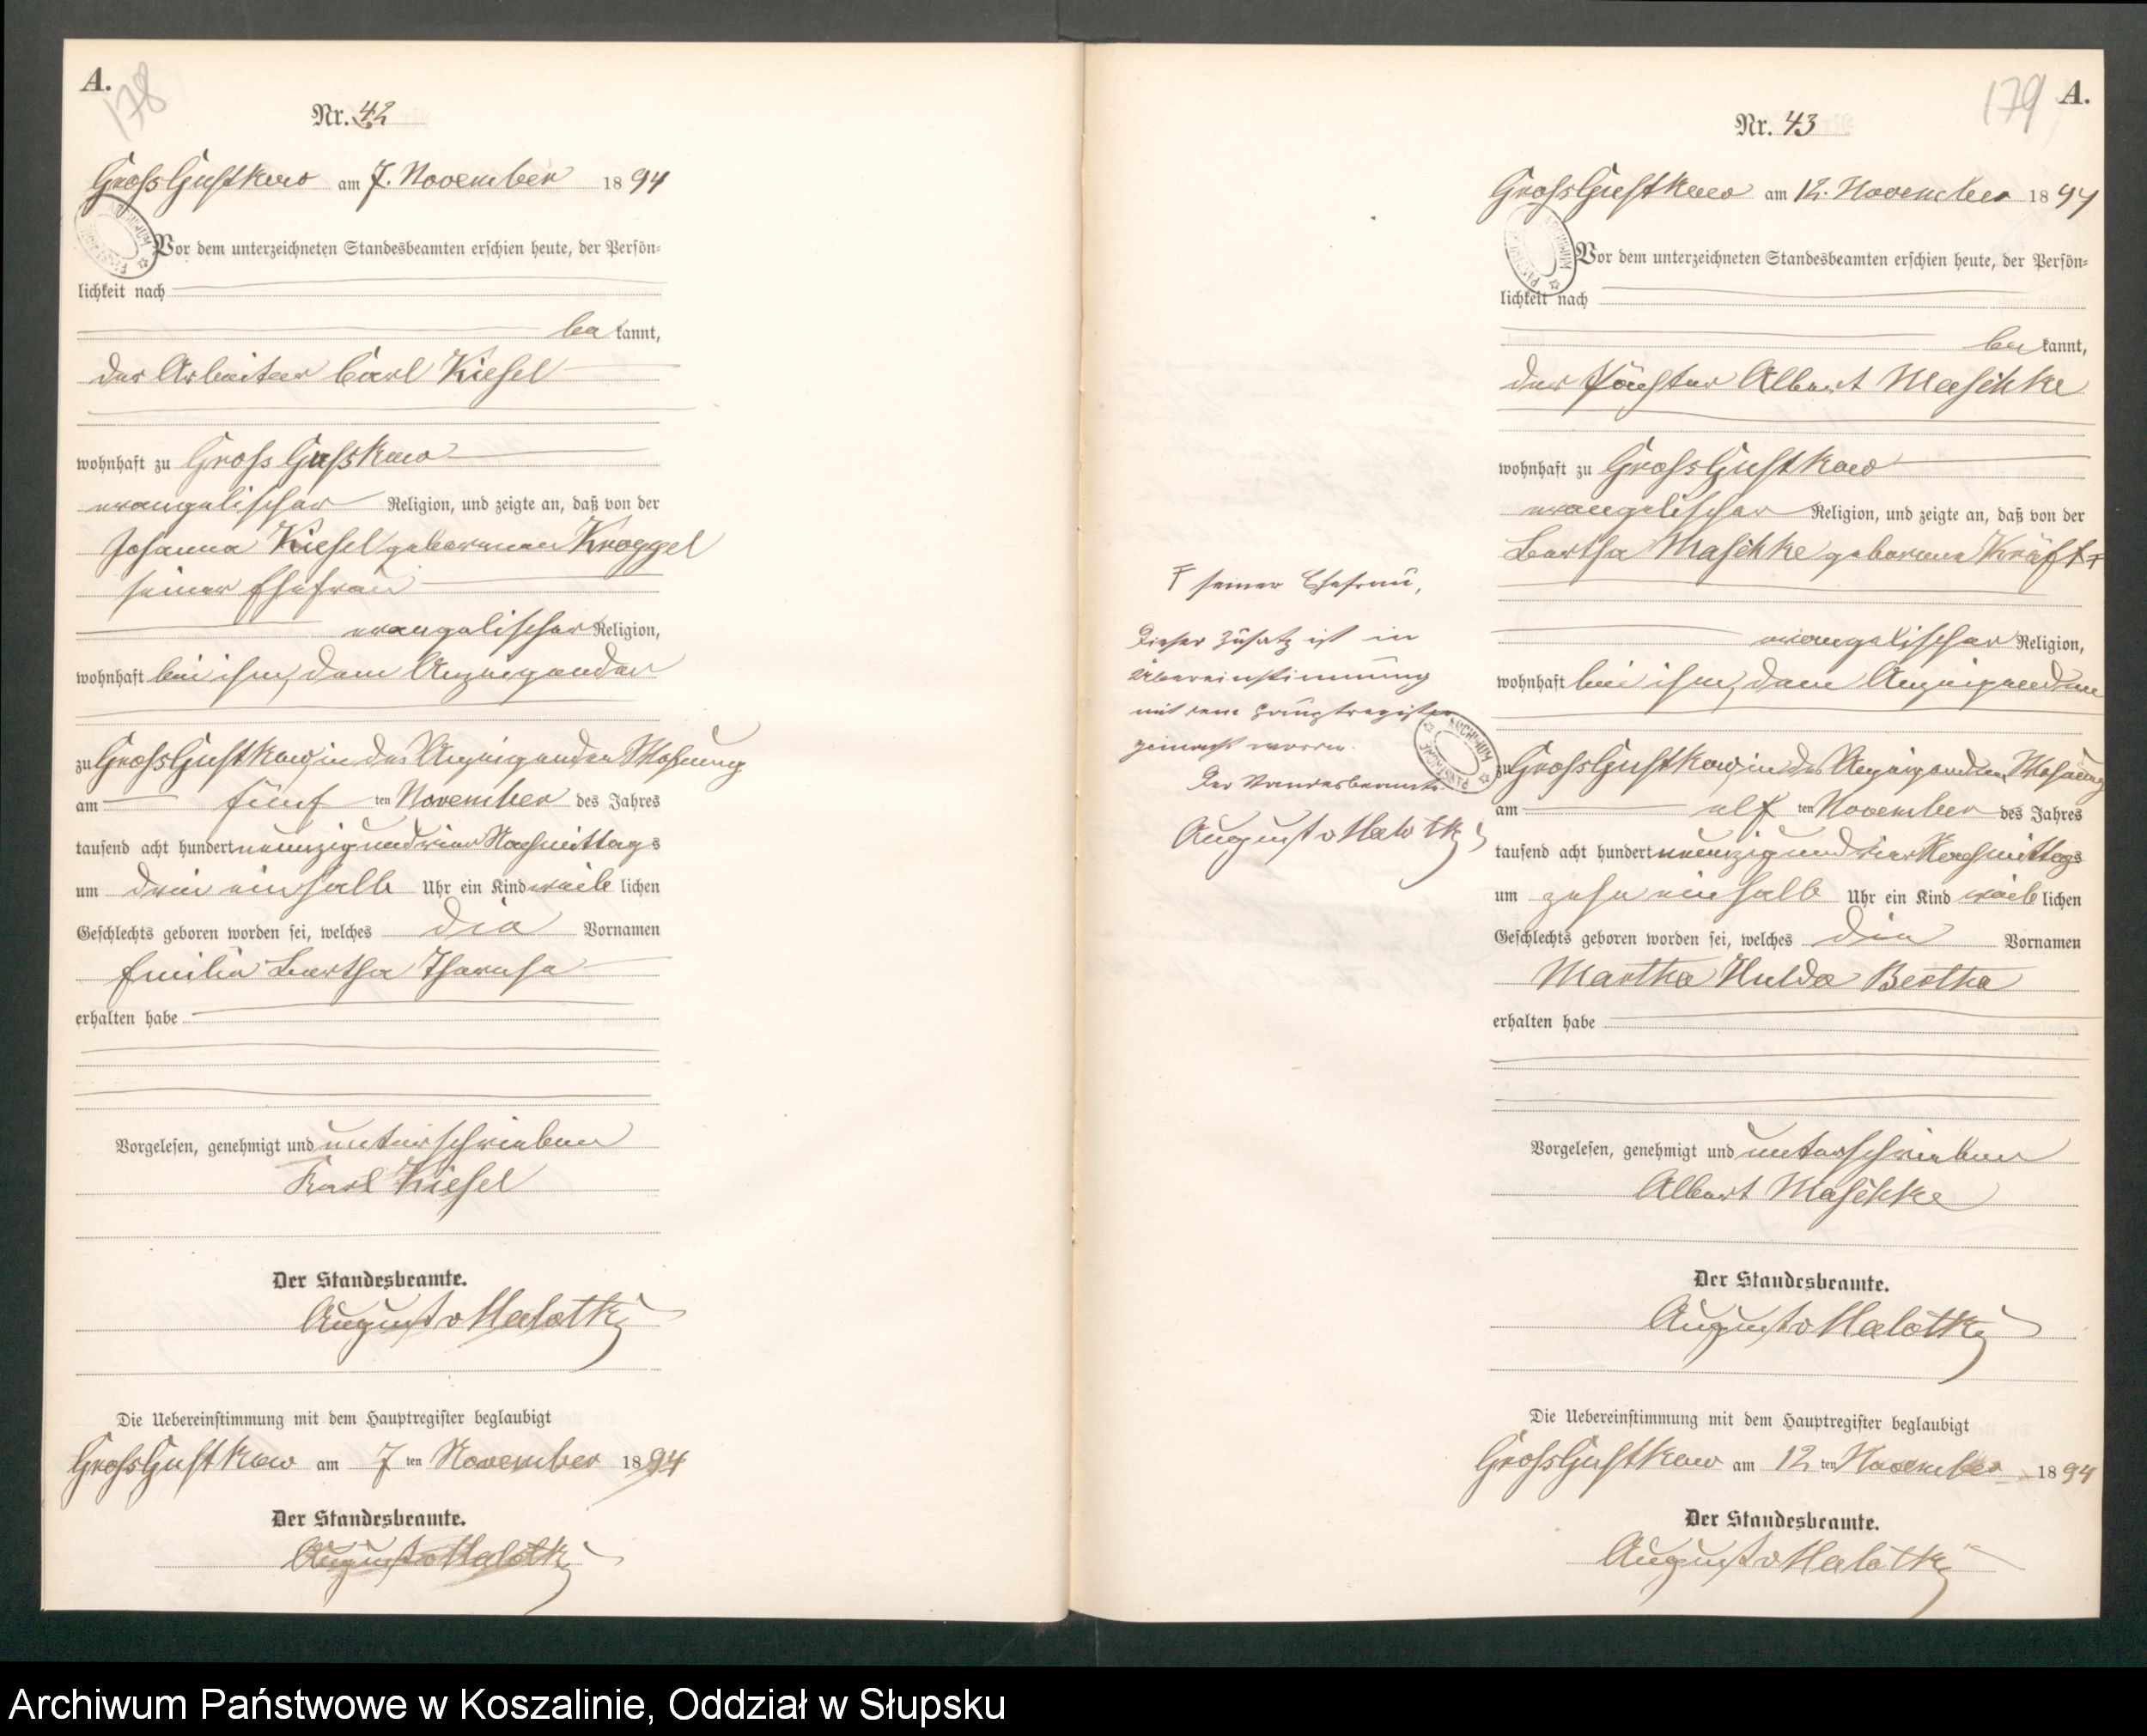 A.
178
Nr. 42
Groß Gustkow am 7. November 1894
Vor dem unterzeichneten Standesbeamten erschien heute, der Persön-
lichkeit nach
be kannt,
der Arbeiter Carl Kiesel
wohnhaft zu Gross Gustkow
evangelischer Religion, und zeigte an, daß von der
Johanna Kiesel geborenen Kroggel
seiner Ehefrau
evangelischer Religion,
wohnhaft bei ihm, dem Anzeigenden
zu Groß Gustkow, in des Anzeigenden Wohnung
am fünf ten November des Jahres
tausend acht hundert neunzig und vier Nachmittags
um drei einhalb Uhr ein Kind weib lichen
Geschlechts geboren worden sei, welches die Vornamen
Emilie Bertha Therese
erhalten habe
Vorgelesen, genehmigt und unterschrieben
Karl Kiesel
Der Standesbeamte.
August v Malotky
Die Uebereinstimmung mit dem Hauptregister beglaubigt
Groß Gustkow am 7 ten November 1894
Der Standesbeamte.
August v Malotky
A.
179
Nr. 43
Groß Gustkow am 12. November 1894
Vor dem unterzeichneten Standesbeamten erschien heute, der Persön-
lichkeit nach
be kannt,
der Albert Maschke
wohnhaft zu Groß Gustkow
evangelischer Religion, und zeigte an, daß von der
Bertha Maschke geborene Kräft
evangelischer Religion,
wohnhaft bei ihm, dem Anzeigenden
zu Groß Gustkow, in des Anzeigenden Wohnung
am elf ten November des Jahres
tausend acht hundert neunzig und vier Nachmittags
um zehn einhalb Uhr ein Kind weib lichen
Geschlechts geboren worden sei, welches die Vornamen
Martha Hulda Bertha
erhalten habe
Vorgelesen, genehmigt und unterschrieben
Albert Maschke
Der Standesbeamte.
August v Malotky
Die Uebereinstimmung mit dem Hauptregister beglaubigt
Groß Gustkow am 12 ten November 1894
Der Standesbeamte.
August v Malotky
seiner Ehefrau,
Dieser Zusatz ist in
Übereinstimmung
mit dem Hauptregister
gemacht worden.
Der Standesbeamte
August v Malotky
Archiwum Państwowe w Koszalinie, Oddział w Słupsku